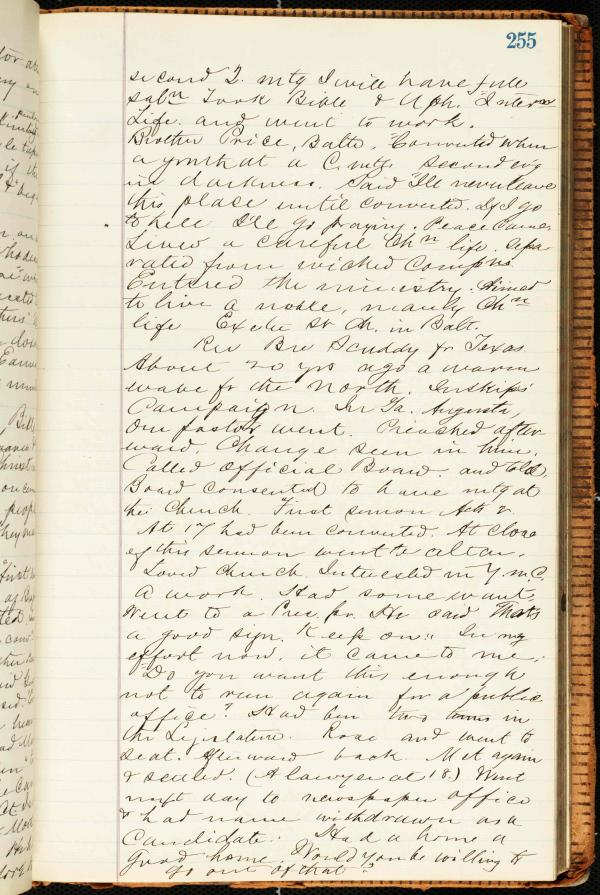 255
second 2. mtg I will have full
salⁿ Took Bible & Uph. "Interor
Life. and went to work.
Brother Price, Balto. "Converted when
a youth at a C. mtg. Second ev'g
in darkness. Said "I'll never leave
this place until converted. If I go
to hell I'll go praying. Peace came.
Lived a careful Chⁿ life. Sepa-
rated from wicked compns.
Entered the ministry. Aimed
to live a noble, manly Chⁿ
life Exeter St Ch. in Balt.
Rev Bro Scuddy fr Texas.
About 20 yrs ago a warm
wave fr the North. Inskips'
Campaign. In Ga. Augusta,
Our pastor went. Preached after-
ward. Change seen in him.
Called Official Board. and told.
Board consented to have mtg at
the Church. First sermon Acts 2.
At 17 had been converted. At close
of this sermon went to altar.
Loved Church. Interested in Y.M.C.
A work. Had some wants.
Went to a Pres. br. He said Thats
a good sign. Keep on." In my
effort now, it came to me,
"Do you want this enough
not to run again for a public
office"? Had ben two terms in
the Legislature. Rose and went to
seat. Afterward back. Met again
& settled. (A lawyer at 18.) Went
next day to newspaper office
& had name withdrawn as a
Candidate. Had a home a
good home. Would you be willing to
go out of that?"